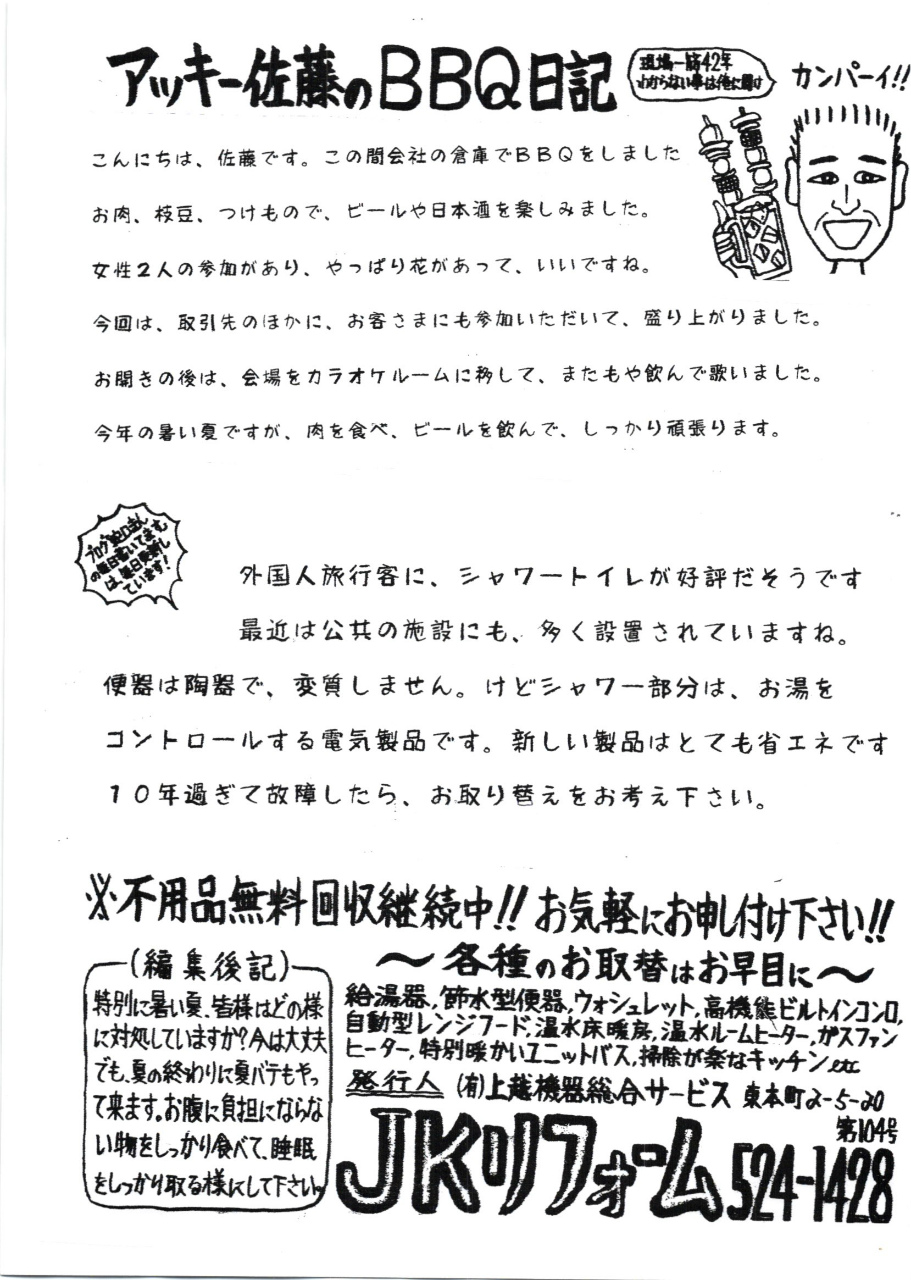 アッキー佐藤のBBQ日記
現場一筋42年
わからない事は俺に聞け
カンパーイ!!
こんにちは、佐藤です。この間会社の倉庫でBBQをしました
お肉、枝豆、つけもので、ビールや日本酒を楽しみました。
女性2人の参加があり、やっぱり花があって、いいですね。
今回は、取引先のほかに、お客さまにも参加いただいて、盛り上がりました。
お開きの後は、会場をカラオケルームに移して、またもや飲んで歌いました。
今年の暑い夏ですが、肉を食べ、ビールを飲んで、しっかり頑張ります。
ブログ
の毎日書いてます
は、毎日更新し
ています!
外国人旅行客に、シャワートイレが好評だそうです
最近は公共の施設にも、多く設置されていますね。
便器は陶器で、変質しません。けどシャワー部分は、お湯を
コントロールする電気製品です。新しい製品はとても省エネです
10年過ぎて故障したら、お取り替えをお考え下さい。
※不用品無料回収継続中!!お気軽にお申し付け下さい!!
(編集後記)
特別に暑い夏、皆様はどの様
に対処していますか?今は大丈夫
でも、夏の終わりに夏バテもやっ
て来ます。お腹に負担にならな
い物をしっかり食べて、睡眠
をしっかり取る様にして下さい。
〜各種のお取替はお早目に〜
給湯器,節水型便器,ウォシュレット,高機能ビルトインコンロ,
自動型レンジフード,温水床暖房,温水ルームヒーター,ガスファン
ヒーター,特別暖かいユニットバス,掃除が楽なキッチンetc
発行人 (有)上越機器総合サービス 東本町2-5-20
第104号
JKリフォーム 524-1428